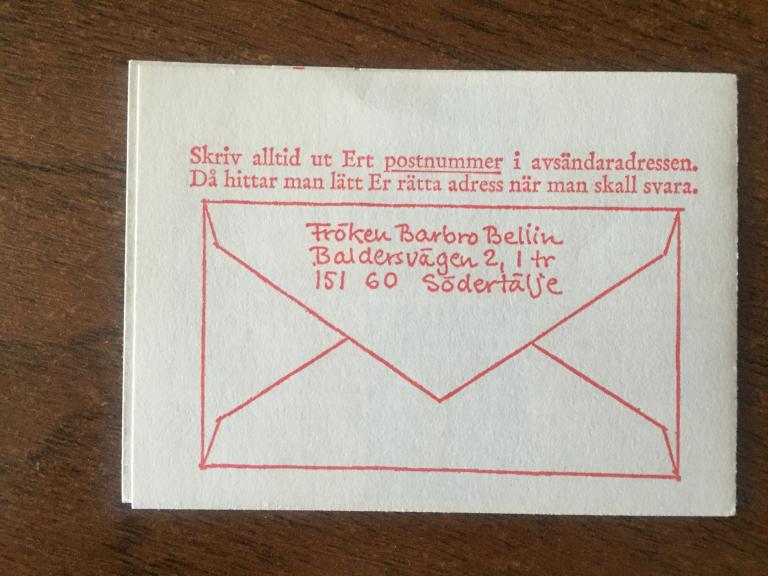 Skriv alltid ut Ert postnummer i avsändaradressen.
Då hittar man lätt Er rätta adress när man skall svara.
Fröken Barbro Bellin
Baldersvägen 2, 1 tr
151 60 Södertälje